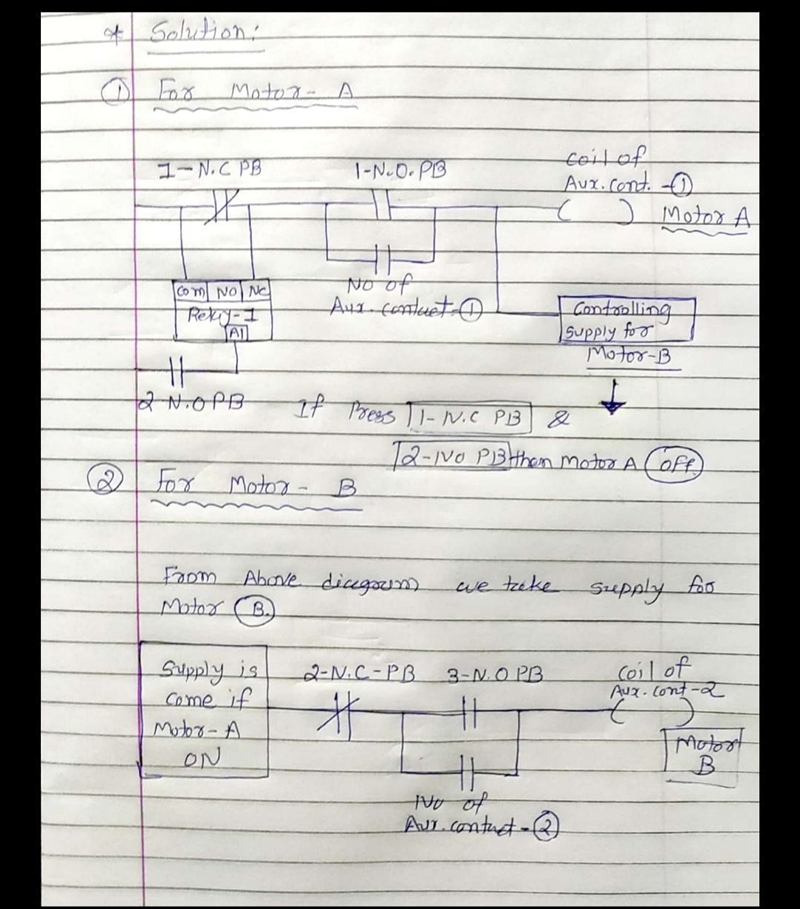 * Solution:
① For Motor- A
1-N.C PB
1-N.O.PB
coil of
Aux.cont.-①
Motor A
Com NO NC
Relay-1
A1
NO of
Aux.contact-①
Controlling
supply for
Motor-B
2-N.O PB
If Press 1-N.C PB &
2-NO PB then Motor A OFF
② For Motor- B
From Above diagram we take supply for
Motor B.
Supply is
come if
Motor-A
ON
2-N.C-PB
3-N.O PB
coil of
Aux.cont-2
Motor
B
NO of
Aux.contact-②